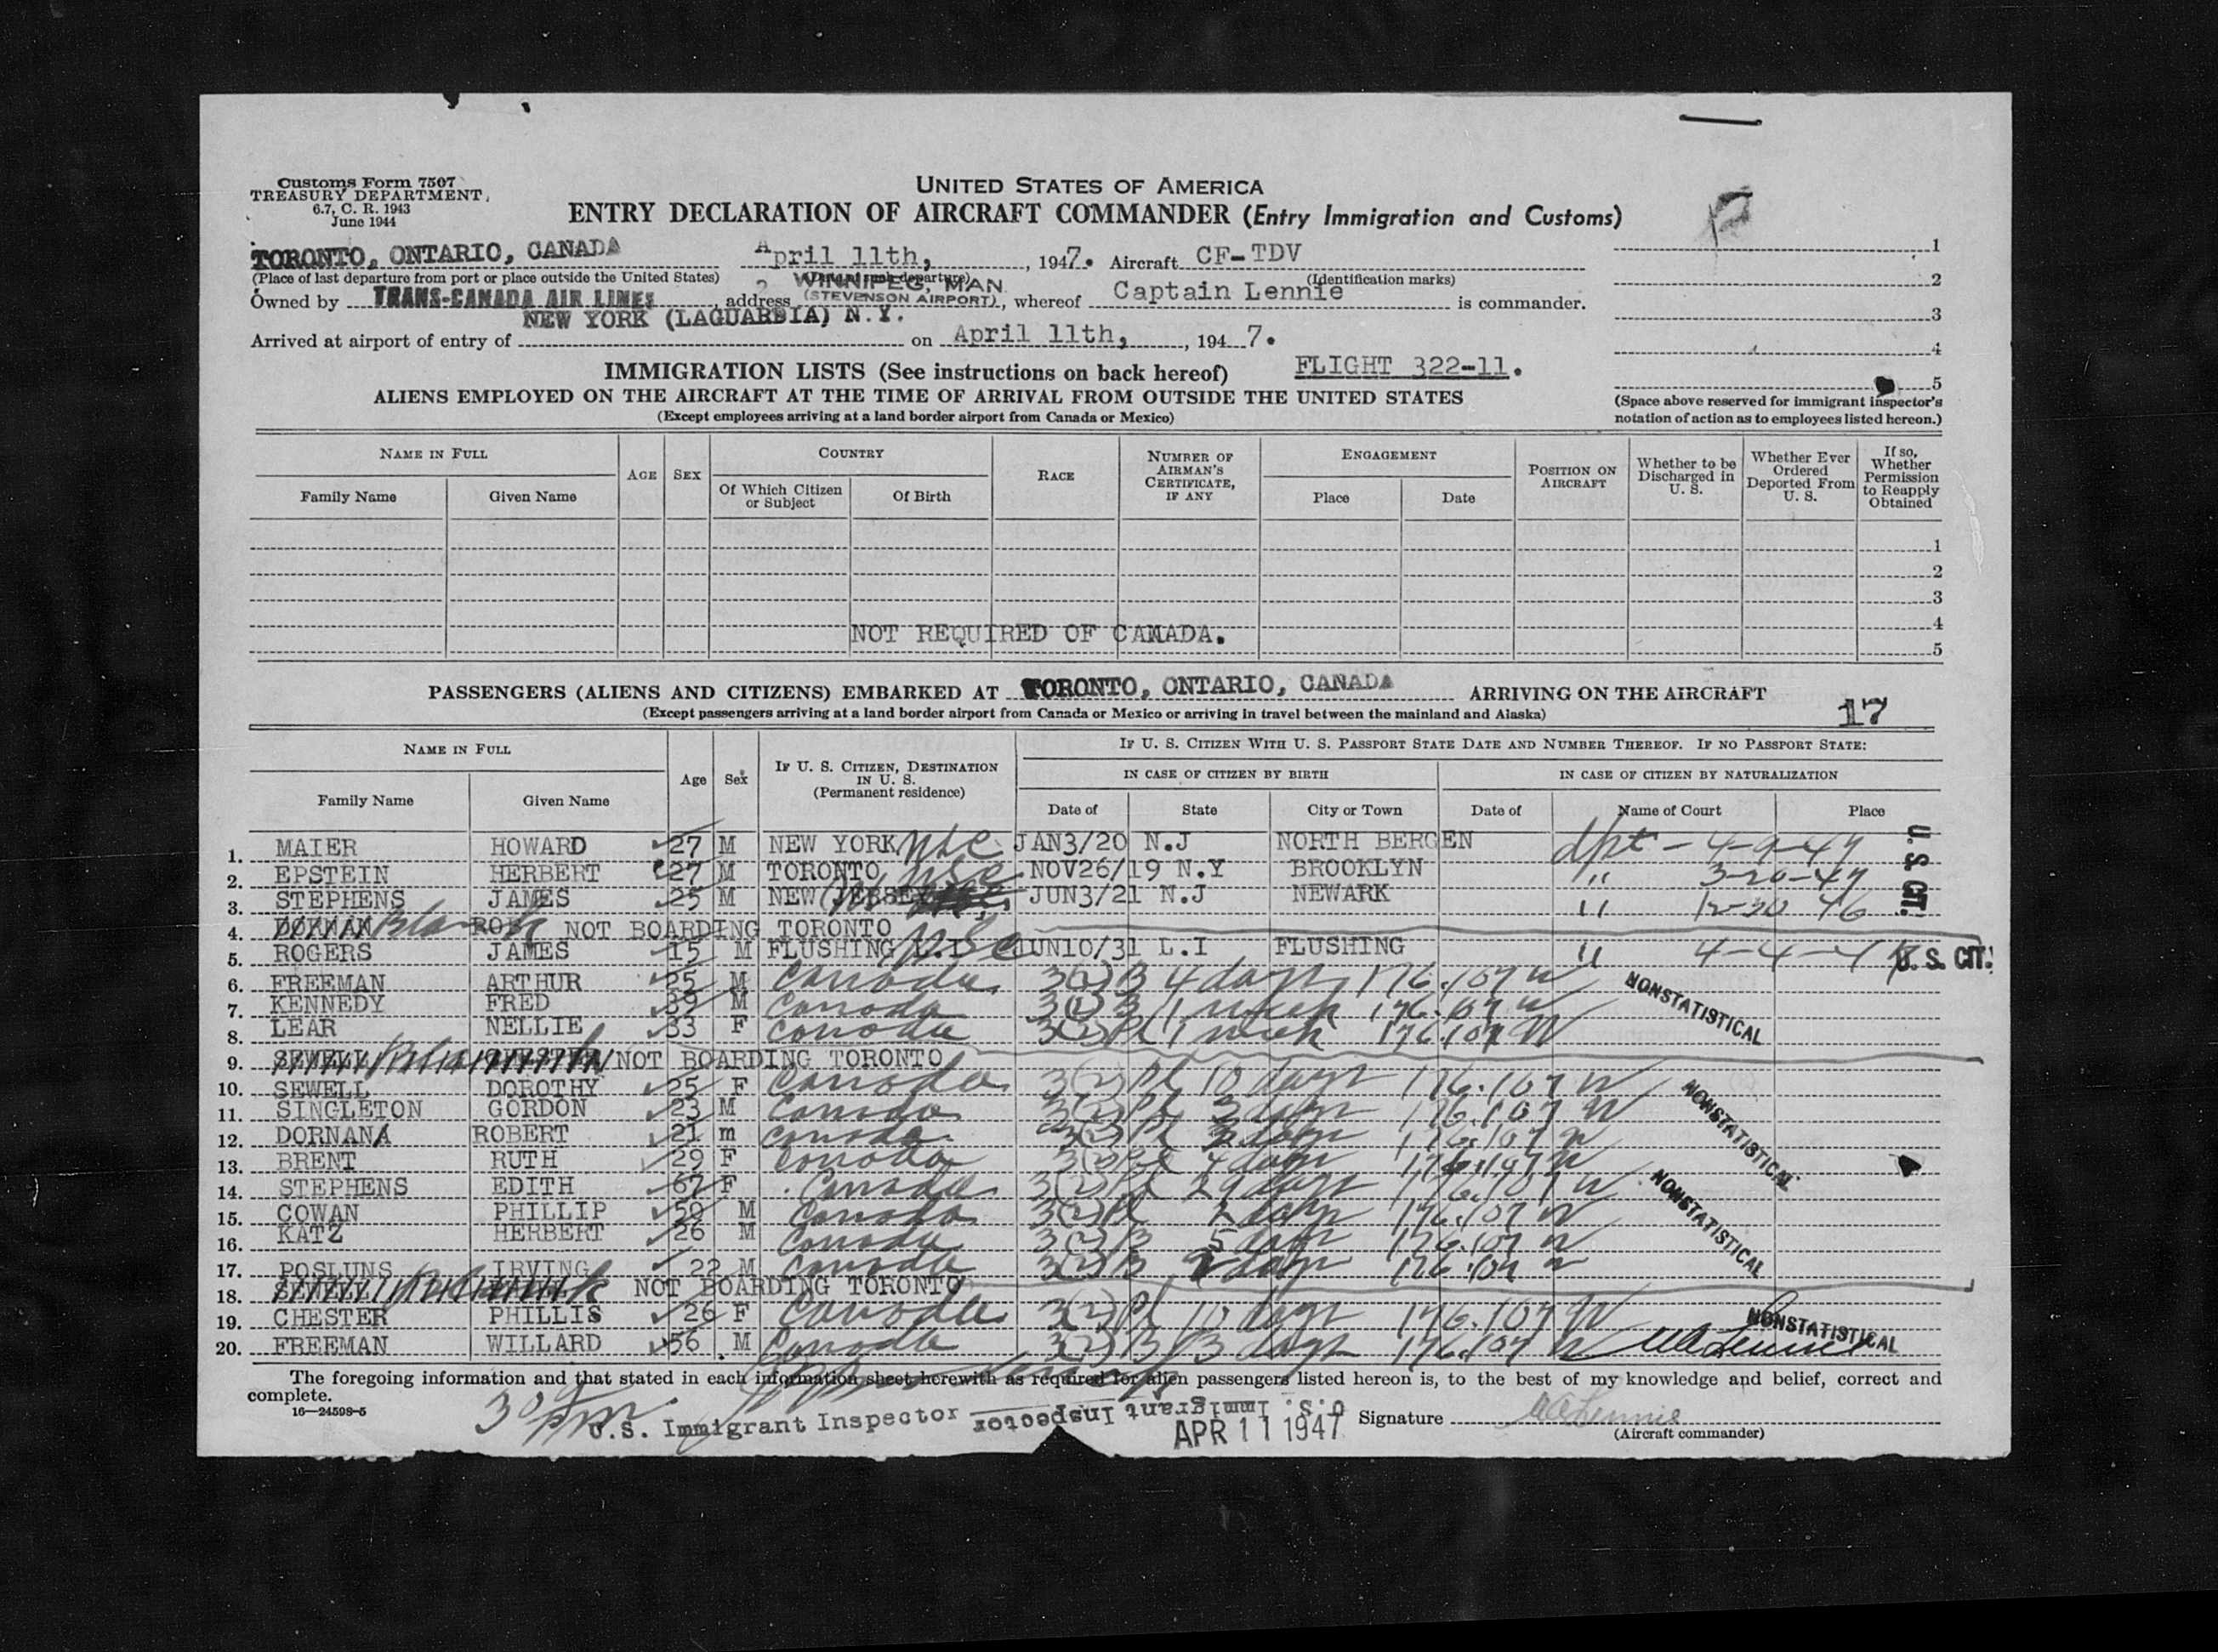 Customs Form 7507
TREASURY DEPARTMENT
6.7, C. R. 1943
June 1944
UNITED STATES OF AMERICA
ENTRY DECLARATION OF AIRCRAFT COMMANDER (Entry Immigration and Customs)
TORONTO, ONTARIO, CANADA April 11th, , 1947. Aircraft CF-TDV
(Place of last departure from port or place outside the United States) (Identification marks)
Owned by TRANS-CANADA AIR LINES, address WINNIPEG, MAN. (STEVENSON AIRPORT), whereof Captain Lennie is commander.
NEW YORK (LAGUARDIA) N.Y.
Arrived at airport of entry of on April 11th, , 1947.
1
2
3
4
5
(Space above reserved for immigrant inspector's notation of action as to employees listed hereon.)
IMMIGRATION LISTS (See instructions on back hereof) FLIGHT 322-11.
ALIENS EMPLOYED ON THE AIRCRAFT AT THE TIME OF ARRIVAL FROM OUTSIDE THE UNITED STATES
(Except employees arriving at a land border airport from Canada or Mexico)
NAME IN FULL
Family Name Given Name
AGE SEX
COUNTRY
Of Which Citizen or Subject Of Birth
RACE
NUMBER OF AIRMAN'S CERTIFICATE, IF ANY
ENGAGEMENT
Place Date
POSITION ON AIRCRAFT
Whether to be Discharged in U. S.
Whether Ever Ordered Deported From U. S.
If so, Whether Permission to Reapply Obtained
1
2
3
4
5
NOT REQUIRED OF CANADA.
PASSENGERS (ALIENS AND CITIZENS) EMBARKED AT TORONTO, ONTARIO, CANADA ARRIVING ON THE AIRCRAFT
(Except passengers arriving at a land border airport from Canada or Mexico or arriving in travel between the mainland and Alaska)
17
NAME IN FULL
Family Name Given Name
Age Sex
IF U. S. CITIZEN, DESTINATION IN U. S. (Permanent residence)
IF U. S. CITIZEN WITH U. S. PASSPORT STATE DATE AND NUMBER THEREOF. IF NO PASSPORT STATE:
IN CASE OF CITIZEN BY BIRTH IN CASE OF CITIZEN BY NATURALIZATION
Date of State City or Town Date of Name of Court Place
1. MAIER HOWARD 27 M NEW YORK usc JAN3/20 N.J NORTH BERGEN dpt - 4-9-47
2. EPSTEIN HERBERT 27 M TORONTO usc NOV26/19 N.Y BROOKLYN " 3-20-47
3. STEPHENS JAMES 25 M NEW JERSEY JUN3/21 N.J NEWARK " 12-30 46
U. S. CIT.
4. Blank NOT BOARDING TORONTO
5. ROGERS JAMES 15 M FLUSHING L.I usc JUN10/31 L.I FLUSHING " 4-4-47 U. S. CIT.
6. FREEMAN ARTHUR 25 M Canada 3(2) B 4 days 176.107 w
7. KENNEDY FRED 39 M Canada 3(2) B 1 week 176.107 w
8. LEAR NELLIE 33 F Canada 3(2) Pl 1 week 176.107 w
NONSTATISTICAL
9. SEWELL NOT BOARDING TORONTO
10. SEWELL DOROTHY 25 F Canada 3(2) Pl 10 days 176.107 w
11. SINGLETON GORDON 23 M Canada 3(2) Pl 3 days 176.107 w
12. DORNAN ROBERT 21 m Canada 3(2) Pl 3 days 176.107 w
NONSTATISTICAL
13. BRENT RUTH 29 F Canada 3(2) Pl 4 days 176.107 w
14. STEPHENS EDITH 67 F Canada 3(2) Pl 29 days 176.107 w
15. COWAN PHILLIP 50 M Canada 3(2) Pl 2 days 176.107 w
16. KATZ HERBERT 26 M Canada 3(2) B 5 days 176.107 w
NONSTATISTICAL
17. POSLUNS IRVING 22 M Canada 3(2) B 2 days 176.107 w
18. NOT BOARDING TORONTO
19. CHESTER PHILLIS 26 F Canada 3(2) Pl 10 days 176.107 w
20. FREEMAN WILLARD 56 M Canada 3(2) B 3 days 176.107 w
NONSTATISTICAL
The foregoing information and that stated in each information sheet herewith as required for alien passengers listed hereon is, to the best of my knowledge and belief, correct and complete.
16—24598-5
U.S. Immigrant Inspector U.S. Immigrant Inspector
APR 11 1947
Signature WA Lennie
(Aircraft commander)